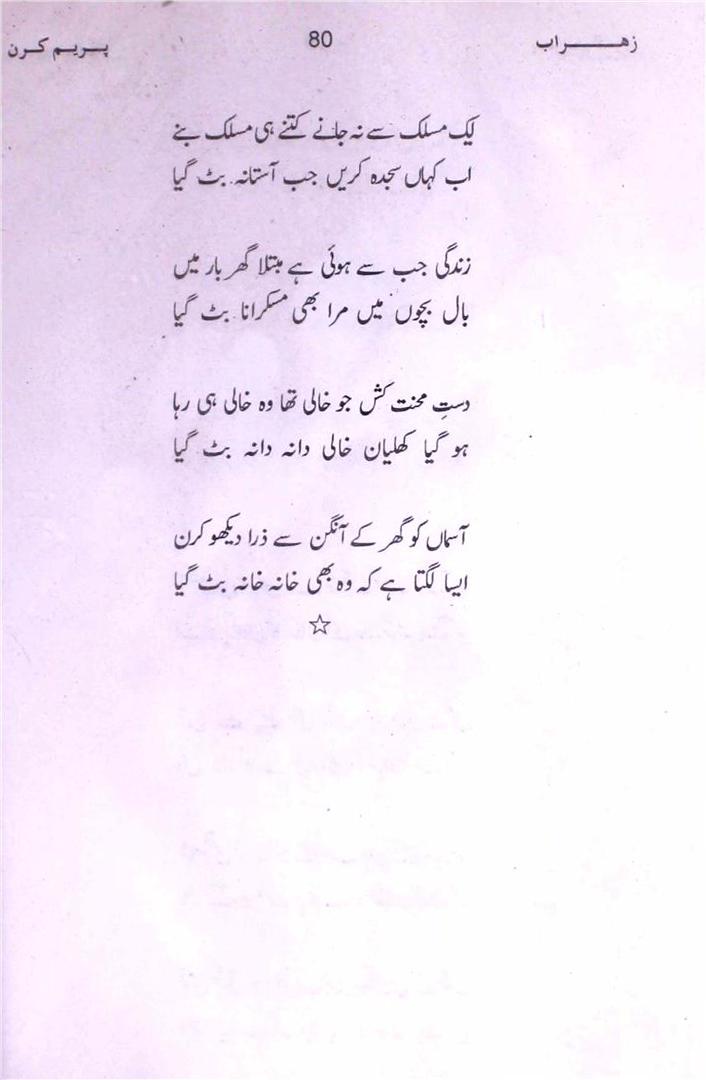 زهراب 80 پریم کرن
یک مسلک سے نہ جانے کتنے ہی مسلک بنے
اب کہاں سجدہ کریں جب آستانہ بٹ گیا
زندگی جب سے ہوئی ہے مبتلا گھر بار میں
بال بچوں میں مرا بھی مسکرانا بٹ گیا
دستِ محنت کش جو خالی تھا وہ خالی ہی رہا
ہو گیا کھلیان خالی دانہ دانہ بٹ گیا
آسماں کو گھر کے آنگن سے ذرا دیکھو کرن
ایسا لگتا ہے کہ وہ بھی خانہ خانہ بٹ گیا
☆